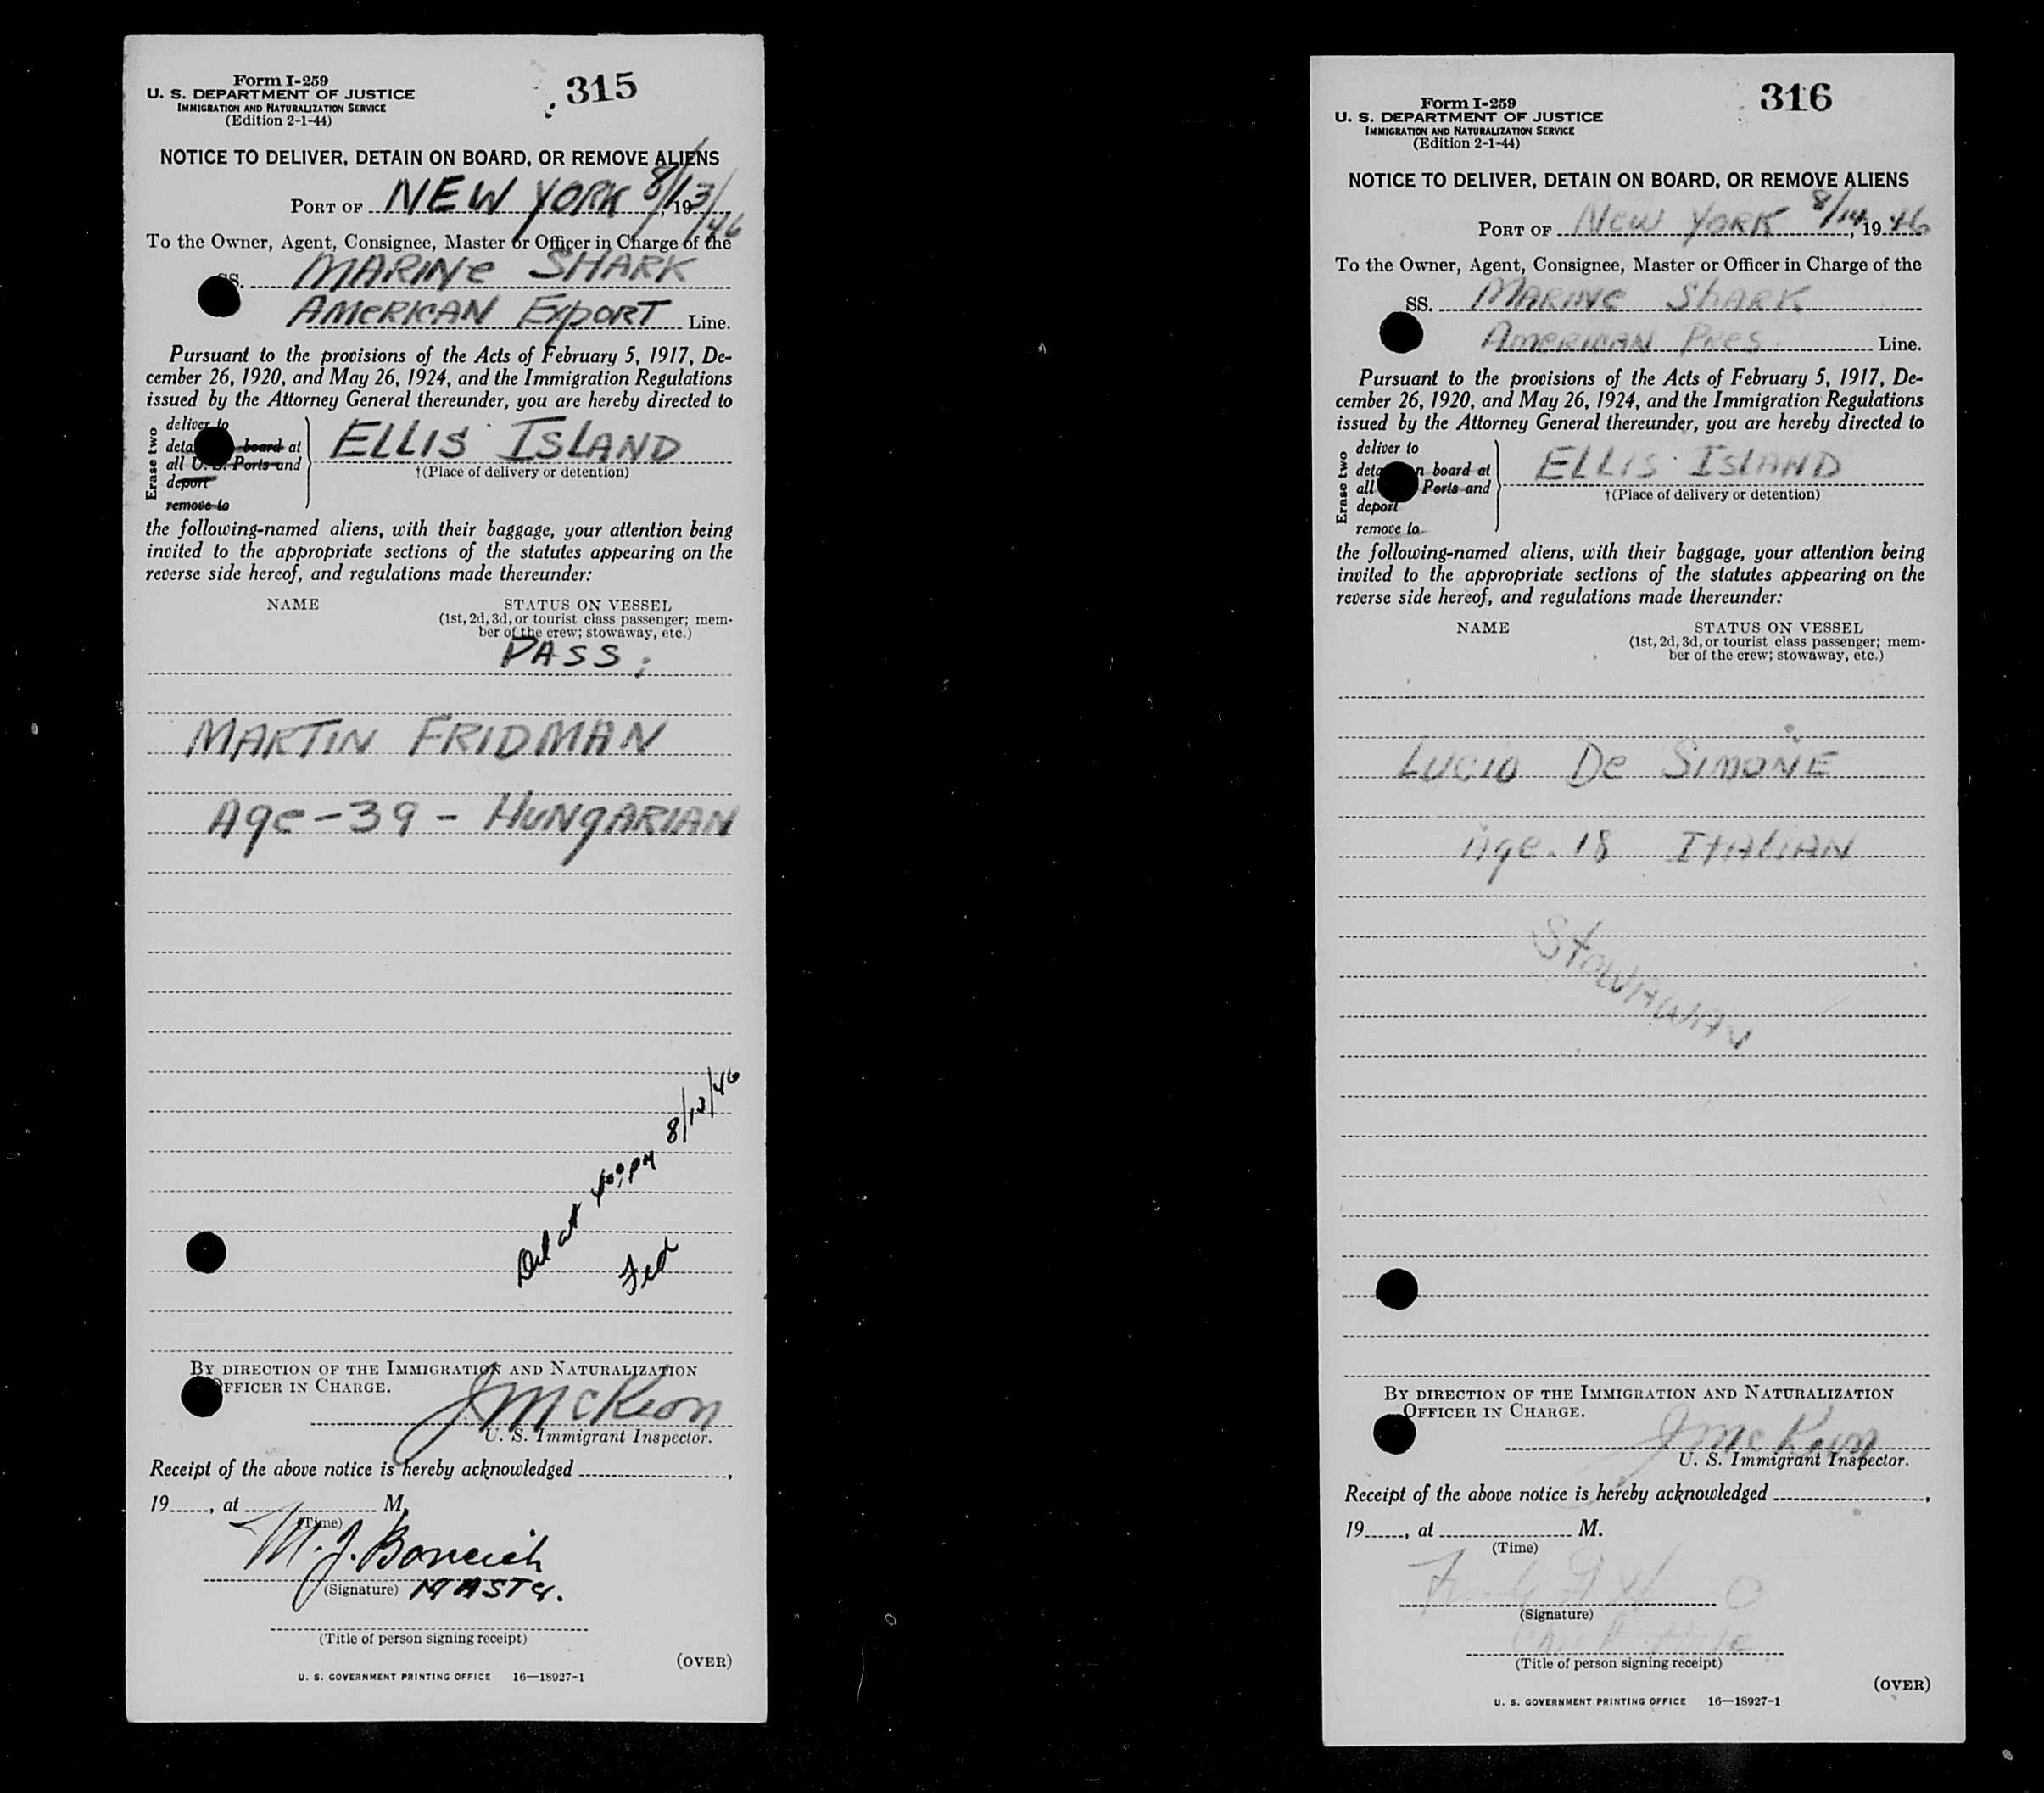 Form I-259
U. S. DEPARTMENT OF JUSTICE
IMMIGRATION AND NATURALIZATION SERVICE
(Edition 2-1-44)
315
NOTICE TO DELIVER, DETAIN ON BOARD, OR REMOVE ALIENS
PORT OF NEW YORK 8/13/46, 19
To the Owner, Agent, Consignee, Master or Officer in Charge of the
SS. MARINE SHARK
AMERICAN EXPORT Line.
Pursuant to the provisions of the Acts of February 5, 1917, De-
cember 26, 1920, and May 26, 1924, and the Immigration Regulations
issued by the Attorney General thereunder, you are hereby directed to
Erase two
deliver to
board at
all U. S. Ports and
deport
remove to
ELLIS ISLAND
†(Place of delivery or detention)
the following-named aliens, with their baggage, your attention being
invited to the appropriate sections of the statutes appearing on the
reverse side hereof, and regulations made thereunder:
NAME
STATUS ON VESSEL
(1st, 2d, 3d, or tourist class passenger; mem-
ber of the crew; stowaway, etc.)
PASS.
MARTIN FRIDMAN
Age-39 - HUNGARIAN
Del at 4:00 PM 8/13/46
BY DIRECTION OF THE IMMIGRATION AND NATURALIZATION
OFFICER IN CHARGE.
J McKeon
U. S. Immigrant Inspector.
Receipt of the above notice is hereby acknowledged ,
19 , at M.
(Time)
M. J.
(Signature) MASTER.
(Title of person signing receipt)
(OVER)
U. S. GOVERNMENT PRINTING OFFICE 16—18927-1
Form I-259
U. S. DEPARTMENT OF JUSTICE
IMMIGRATION AND NATURALIZATION SERVICE
(Edition 2-1-44)
316
NOTICE TO DELIVER, DETAIN ON BOARD, OR REMOVE ALIENS
PORT OF NEW YORK 8/14, 19 46
To the Owner, Agent, Consignee, Master or Officer in Charge of the
SS. MARINE SHARK
AMERICAN PRES. Line.
Pursuant to the provisions of the Acts of February 5, 1917, De-
cember 26, 1920, and May 26, 1924, and the Immigration Regulations
issued by the Attorney General thereunder, you are hereby directed to
Erase two
deliver to
board at
all Ports and
deport
remove to
ELLIS ISLAND
†(Place of delivery or detention)
the following-named aliens, with their baggage, your attention being
invited to the appropriate sections of the statutes appearing on the
reverse side hereof, and regulations made thereunder:
NAME
STATUS ON VESSEL
(1st, 2d, 3d, or tourist class passenger; mem-
ber of the crew; stowaway, etc.)
LUCIO De SIMONE
Age. 18 ITALIAN
STOWAWAY
BY DIRECTION OF THE IMMIGRATION AND NATURALIZATION
OFFICER IN CHARGE.
J McKeon
U. S. Immigrant Inspector.
Receipt of the above notice is hereby acknowledged ,
19 , at M.
(Time)
(Signature)
(Title of person signing receipt)
(OVER)
U. S. GOVERNMENT PRINTING OFFICE 16—18927-1